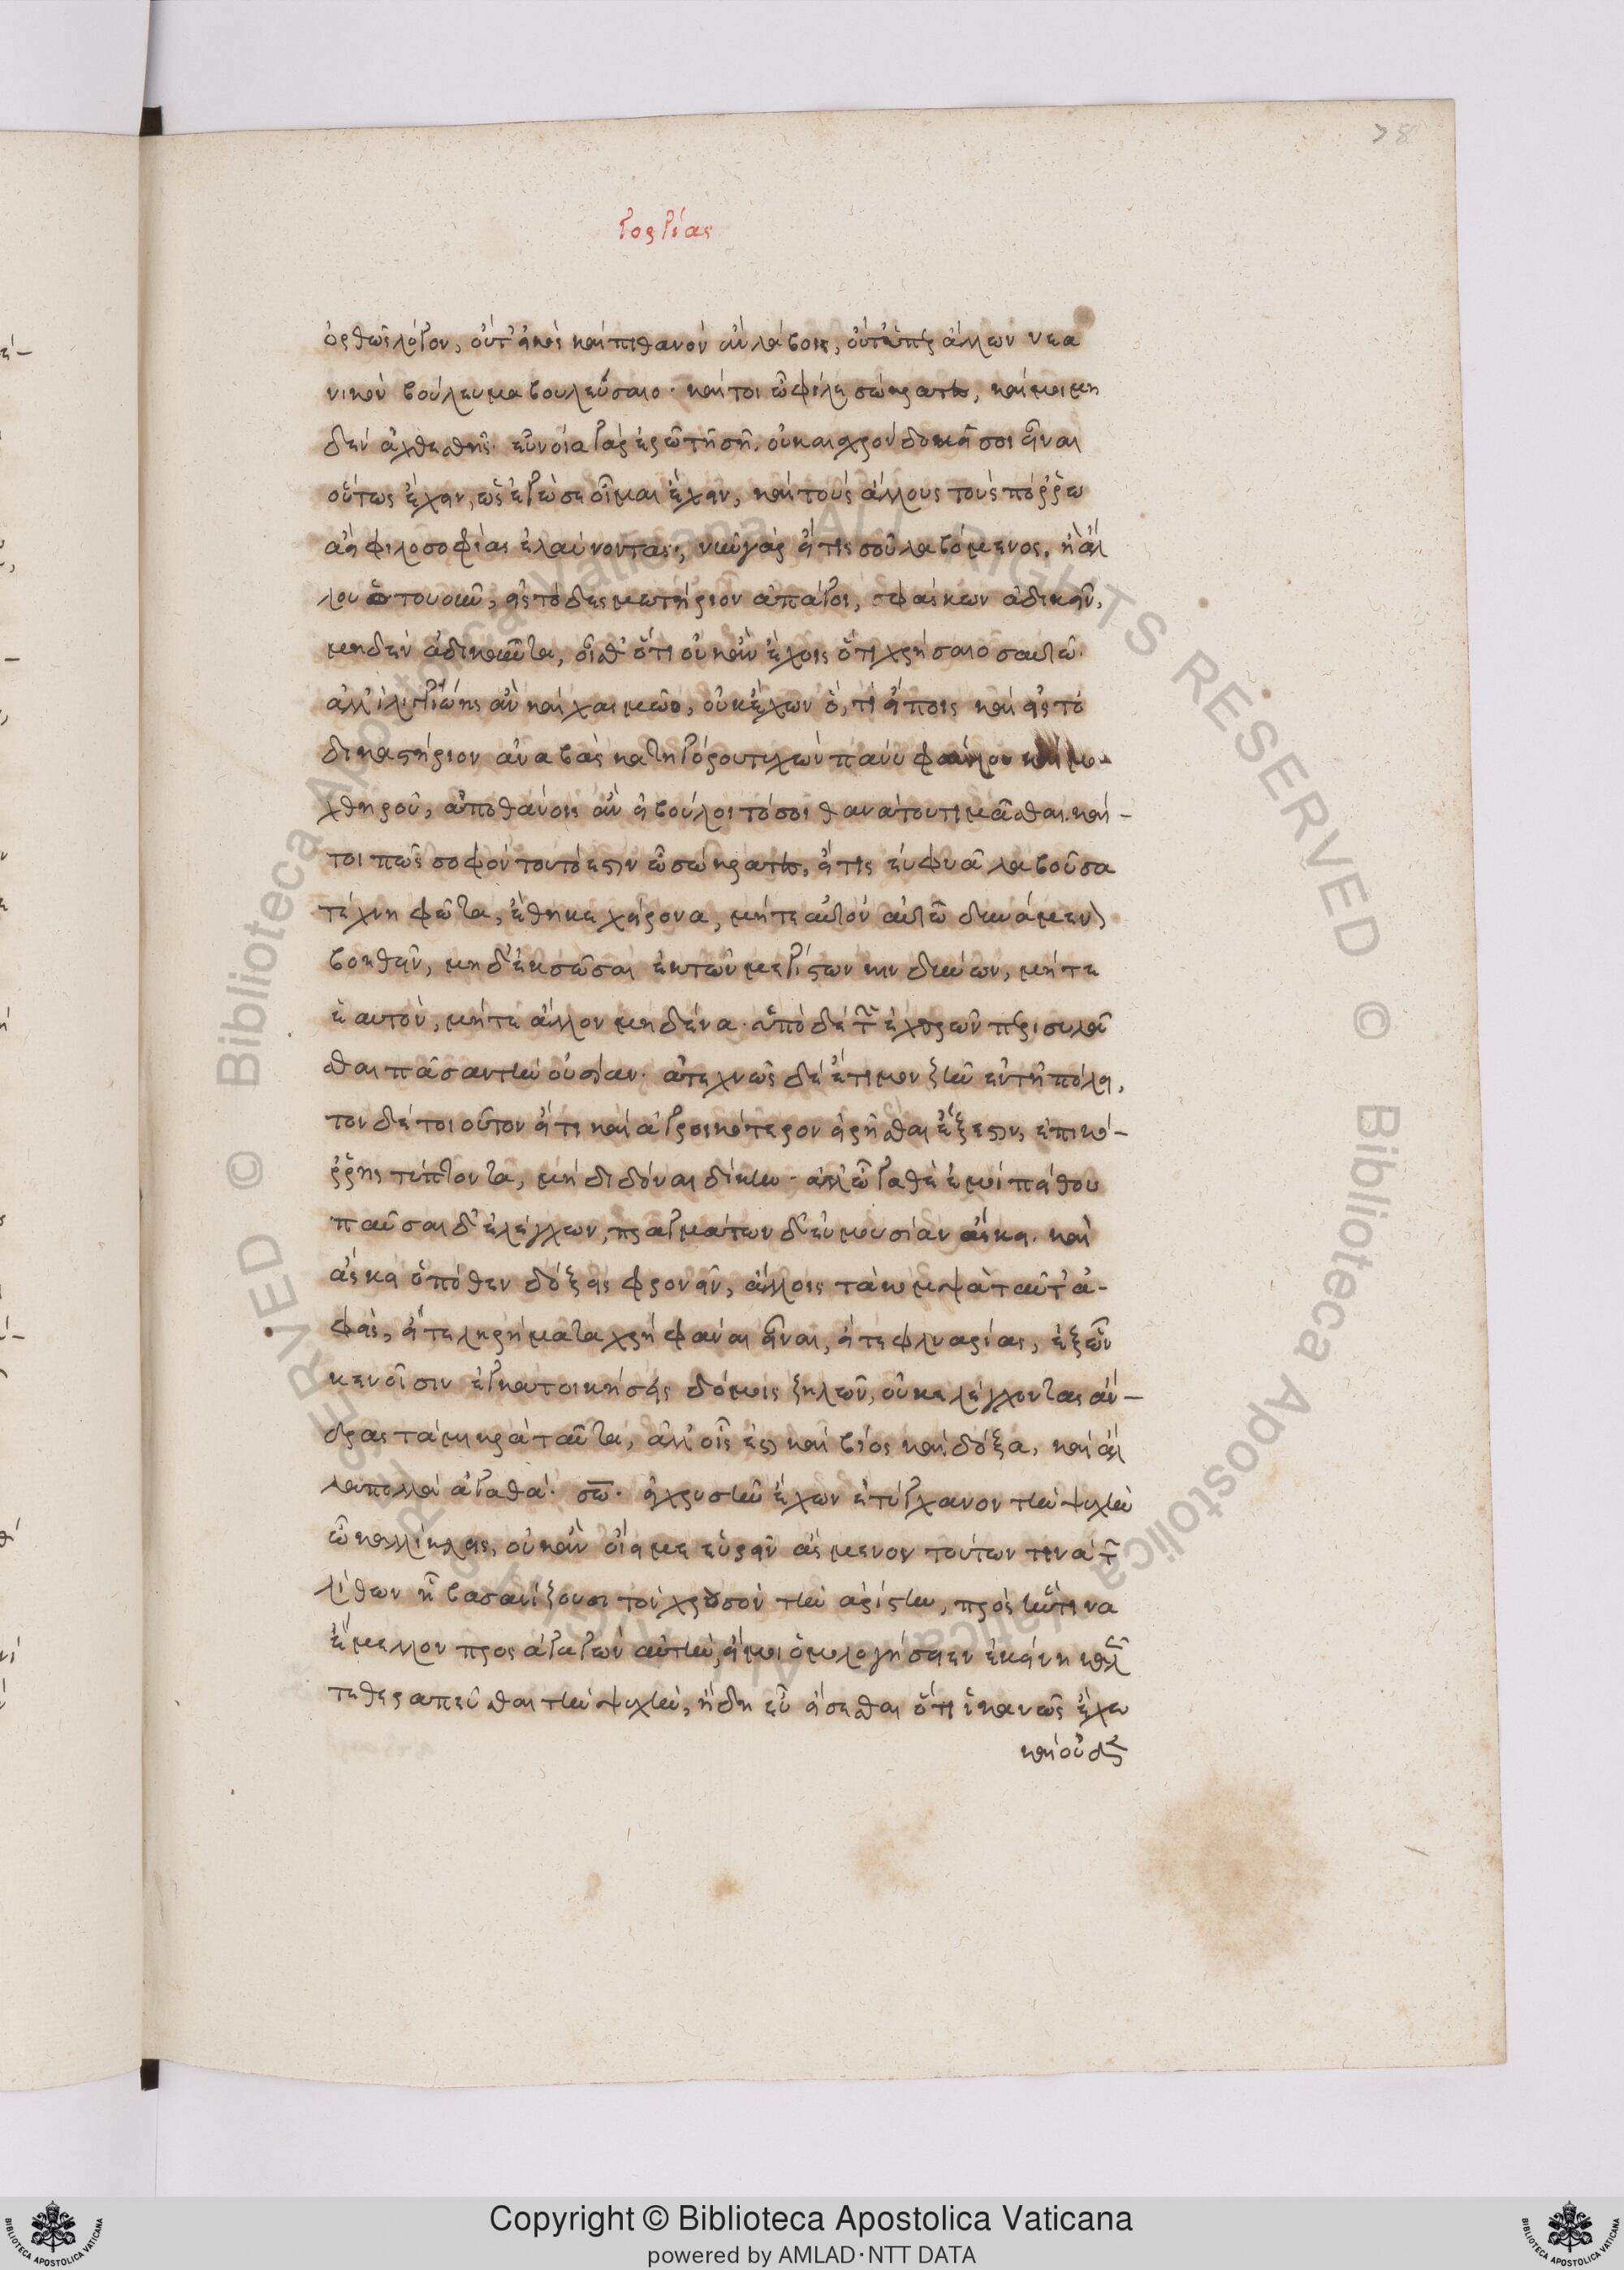 78
γοργίας
ὀρθῶς λόγον, οὔτ' εἰκὸς καὶ πιθανὸν ἂν λάβοις, οὔθ' ὑπὲρ ἄλλων νεα
νικὸν βούλευμα βουλεύσαιο· καίτοι ὦ φίλε σώκρατες, καί μοι μη
δὲν ἀχθεσθῇς· εὐνοίᾳ γὰρ ἐρῶ τῇ σῇ. οὐκ αἰσχρὸν δοκεῖ σοι εἶναι
οὕτως ἔχειν, ὡς ἐγώ σε οἶμαι ἔχειν, καὶ τοὺς ἄλλους τοὺς πόρρω
ἀεὶ φιλοσοφίας ἐλαύνοντας; νῦν γὰρ εἴ τις σοῦ λαβόμενος, ἢ ἄλ
λου ὁτουοῦν, εἰς τὸ δεσμωτήριον ἀπάγοι, φάσκων ἀδικεῖν,
μηδὲν ἀδικοῦντα, οἶσθ' ὅτι οὐκ ἂν ἔχοις ὅτι χρήσαιο σαυτῷ·
ἀλλ' ἰλιγγιῴης ἂν καὶ χασμῷο, οὐκ ἔχων ὅ, τι εἴποις καὶ εἰς τὸ
δικαστήριον ἀναβὰς κατηγόρου τυχὼν πάνυ φαύλου καὶ μο
χθηροῦ, ἀποθάνοις ἂν εἰ βούλοιτό σοι θανάτου τιμᾶσθαι. καί-
τοι πῶς σοφὸν τοῦτό ἐστιν ὦ σώκρατες, εἴ τις εὐφυᾶ λαβοῦσα
τέχνη φῶτα, ἔθηκε χείρονα, μήτε αὐτὸν αὑτῷ δυνάμενον
βοηθεῖν, μηδ' ἐκσῶσαι ἐκ τῶν μεγίστων κινδύνων, μήτε
ἑαυτὸν, μήτε ἄλλον μηδένα· ὑπὸ δὲ τῶν ἐχθρῶν περισυλᾶ
σθαι πᾶσαν τὴν οὐσίαν· ἀτεχνῶς δὲ ἄτιμον ζῆν ἐν τῇ πόλει,
τὸν δὲ τοιοῦτον εἴ τι καὶ ἀγροικότερον εἰρῆσθαι ἔξεστιν, ἐπὶ κό-
ρρης τύπτοντα, μὴ διδόναι δίκην· ἀλλ' ὦ γαθὲ ἐμοὶ πείθου
παῦσαι δ' ἐλέγχων, πραγμάτων δ' εὐμουσίαν ἄσκει. καὶ
ἄσκει ὁπόθεν δόξεις φρονεῖν, ἄλλοις τὰ κομψὰ ταῦτ' ἀ-
φεὶς, εἴτε ληρήματα χρὴ φάναι εἶναι, εἴτε φλυαρίας, ἐξ ὧν
κενοῖσιν ἐγκατοικήσεις δόμοις ζηλῶν, οὐκ ἐλέγχοντας ἄν-
δρας τὰ μικρὰ ταῦτα, ἀλλ' οἷς ἐστι καὶ βίος καὶ δόξα, καὶ ἄλ
λα πολλὰ ἀγαθά· σω· εἰ χρυσῆν ἔχων ἐτύγχανον τὴν ψυχὴν
ὦ καλλίκλεις, οὐκ ἂν οἴει με εὑρεῖν ἄσμενον τούτων τινὰ τῶν
λίθων ᾗ βασανίζουσι τὸν χρυσὸν τὴν ἀρίστην, πρὸς ἥντινα
ἔμελλον προσαγαγὼν αὐτὴν, εἴ μοι ὁμολογήσειεν ἐκείνη καλῶς
τεθεραπεῦσθαι τὴν ψυχὴν, ἤδη εὖ εἴσεσθαι ὅτι ἱκανῶς ἔχω
καὶ οὐδὲν
Copyright © Biblioteca Apostolica Vaticana
powered by AMLAD·NTT DATA